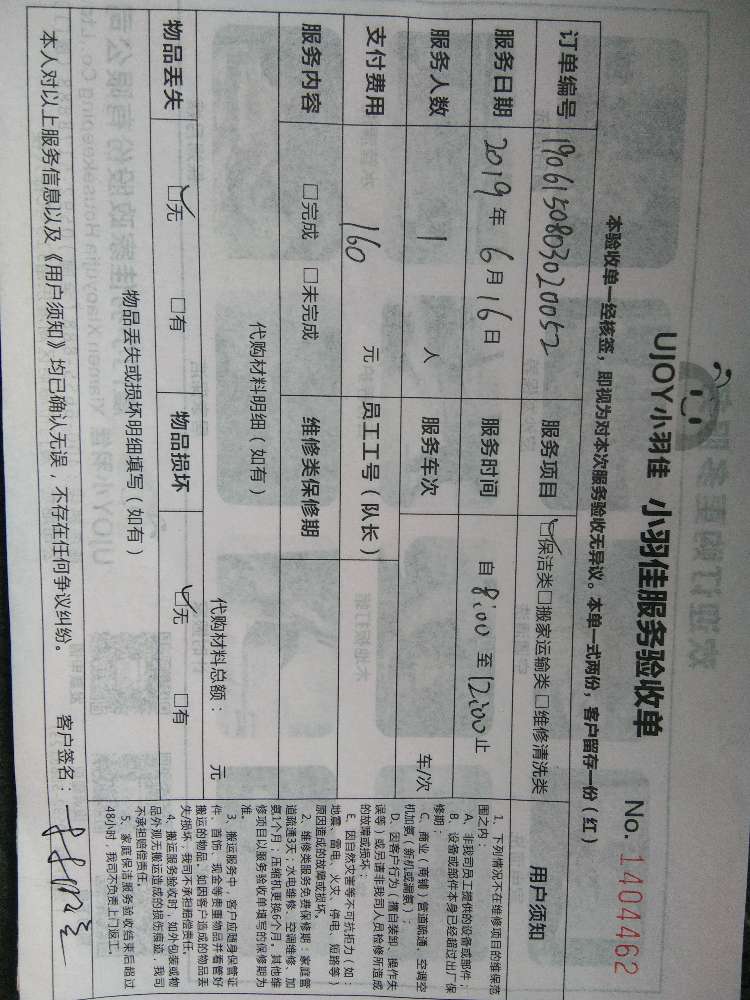 UJOY小羽佳 小羽佳服务验收单
No. 1404462
本验收单一经核签，即视为对本次服务验收无异议。本单一式两份，客户留存一份（红）
订单编号 1906150803020052 服务项目 ☑保洁类□搬家运输类□维修清洗类
服务日期 2019年6月16日 服务时间 自8:00至12:00止
服务人数 1 人 服务车次 车/次
支付费用 160 元 员工工号（队长）
服务内容 □完成 □未完成 维修类保修期
代购材料明细（如有） 代购材料总额： 元
物品丢失 ☑无 □有 物品损坏 ☑无 □有
物品丢失或损坏明细填写（如有）
用户须知
1、下列情况不在维修项目的维保范
围之内：
A、非我司员工提供的设备或部件；
B、设备或部件本身已经超过出厂保
修期；
C、商业（商铺）管道疏通、空调空
机加氨（新机或漏氨）
D、因客户行为（擅自装卸、操作失
误等）或另请非我司人员检修所造成
的故障或损坏；
E、因自然灾害等不可抗拒力（如：
地震、雷电、火灾、停电、短路等）
原因造成的故障或损坏。
2、维修类服务免费保修期：家庭管
道疏通3天；水电维修、空调维修、加
氨1个月；压缩机更换6个月，其他维
修项目以服务验收单填写的保修期为
准。
3、搬运服务中，客户应随身保管证
件、首饰、现金等贵重物品并看管好
搬运的物品，如因客户造成的物品丢
失/损坏，我司不承担赔偿责任。
4、搬运服务验收时，如外包装或物
品外观无搬运造成的损伤痕迹，我司
不承担赔偿责任。
5、家庭保洁服务验收结束后超过
48小时，我司不负责上门返工。
本人对以上服务信息以及《用户须知》均已确认无误，不存在任何争议纠纷。 客户签名：